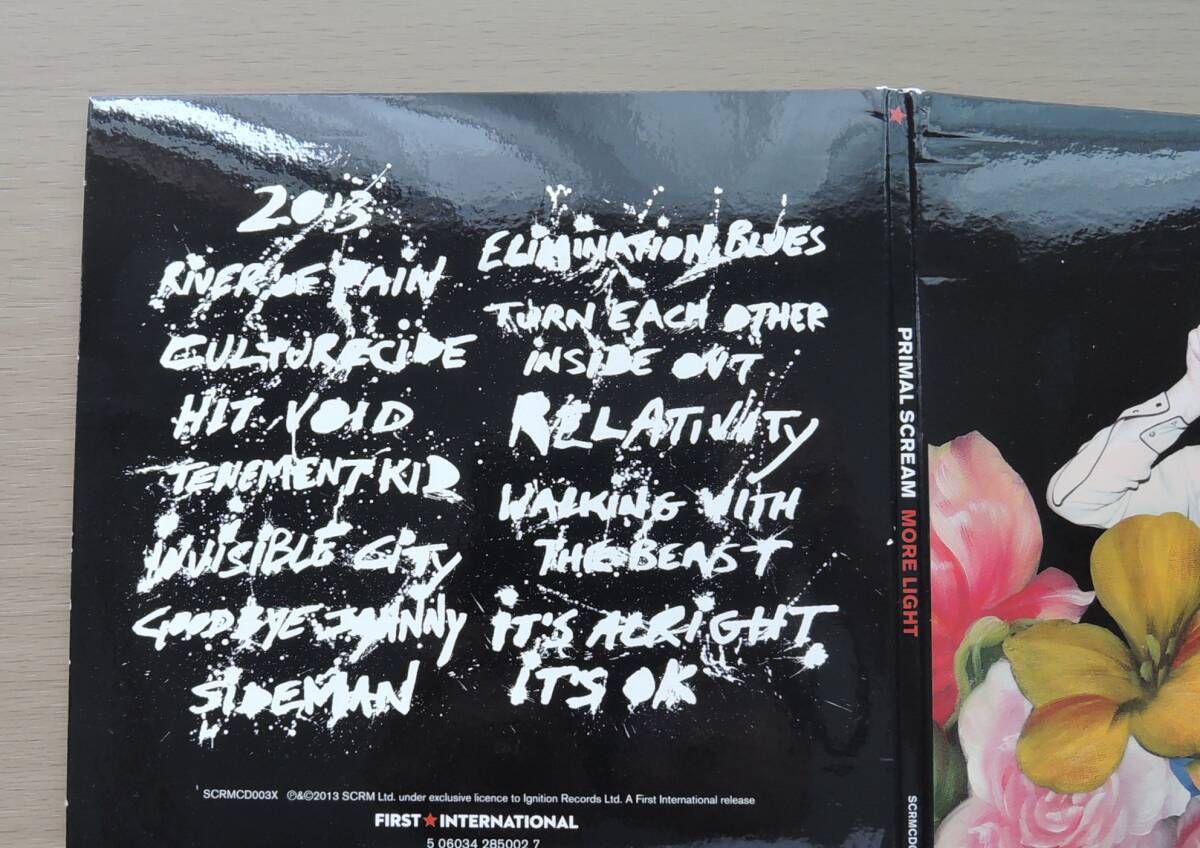 2013
RIVER OF PAIN
CULTURECIDE
HIT VOID
TENEMENT KID
INVISIBLE CITY
GOODBYE JOHNNY
SIDEMAN
ELIMINATION BLUES
TURN EACH OTHER
INSIDE OUT
RELATIVITY
WALKING WITH
THE BEAST
IT'S ALRIGHT
IT'S OK
SCRMCD003X ℗&©2013 SCRM Ltd. under exclusive licence to Ignition Records Ltd. A First International release
FIRST★INTERNATIONAL
5 06034 285002 7
PRIMAL SCREAM MORE LIGHT